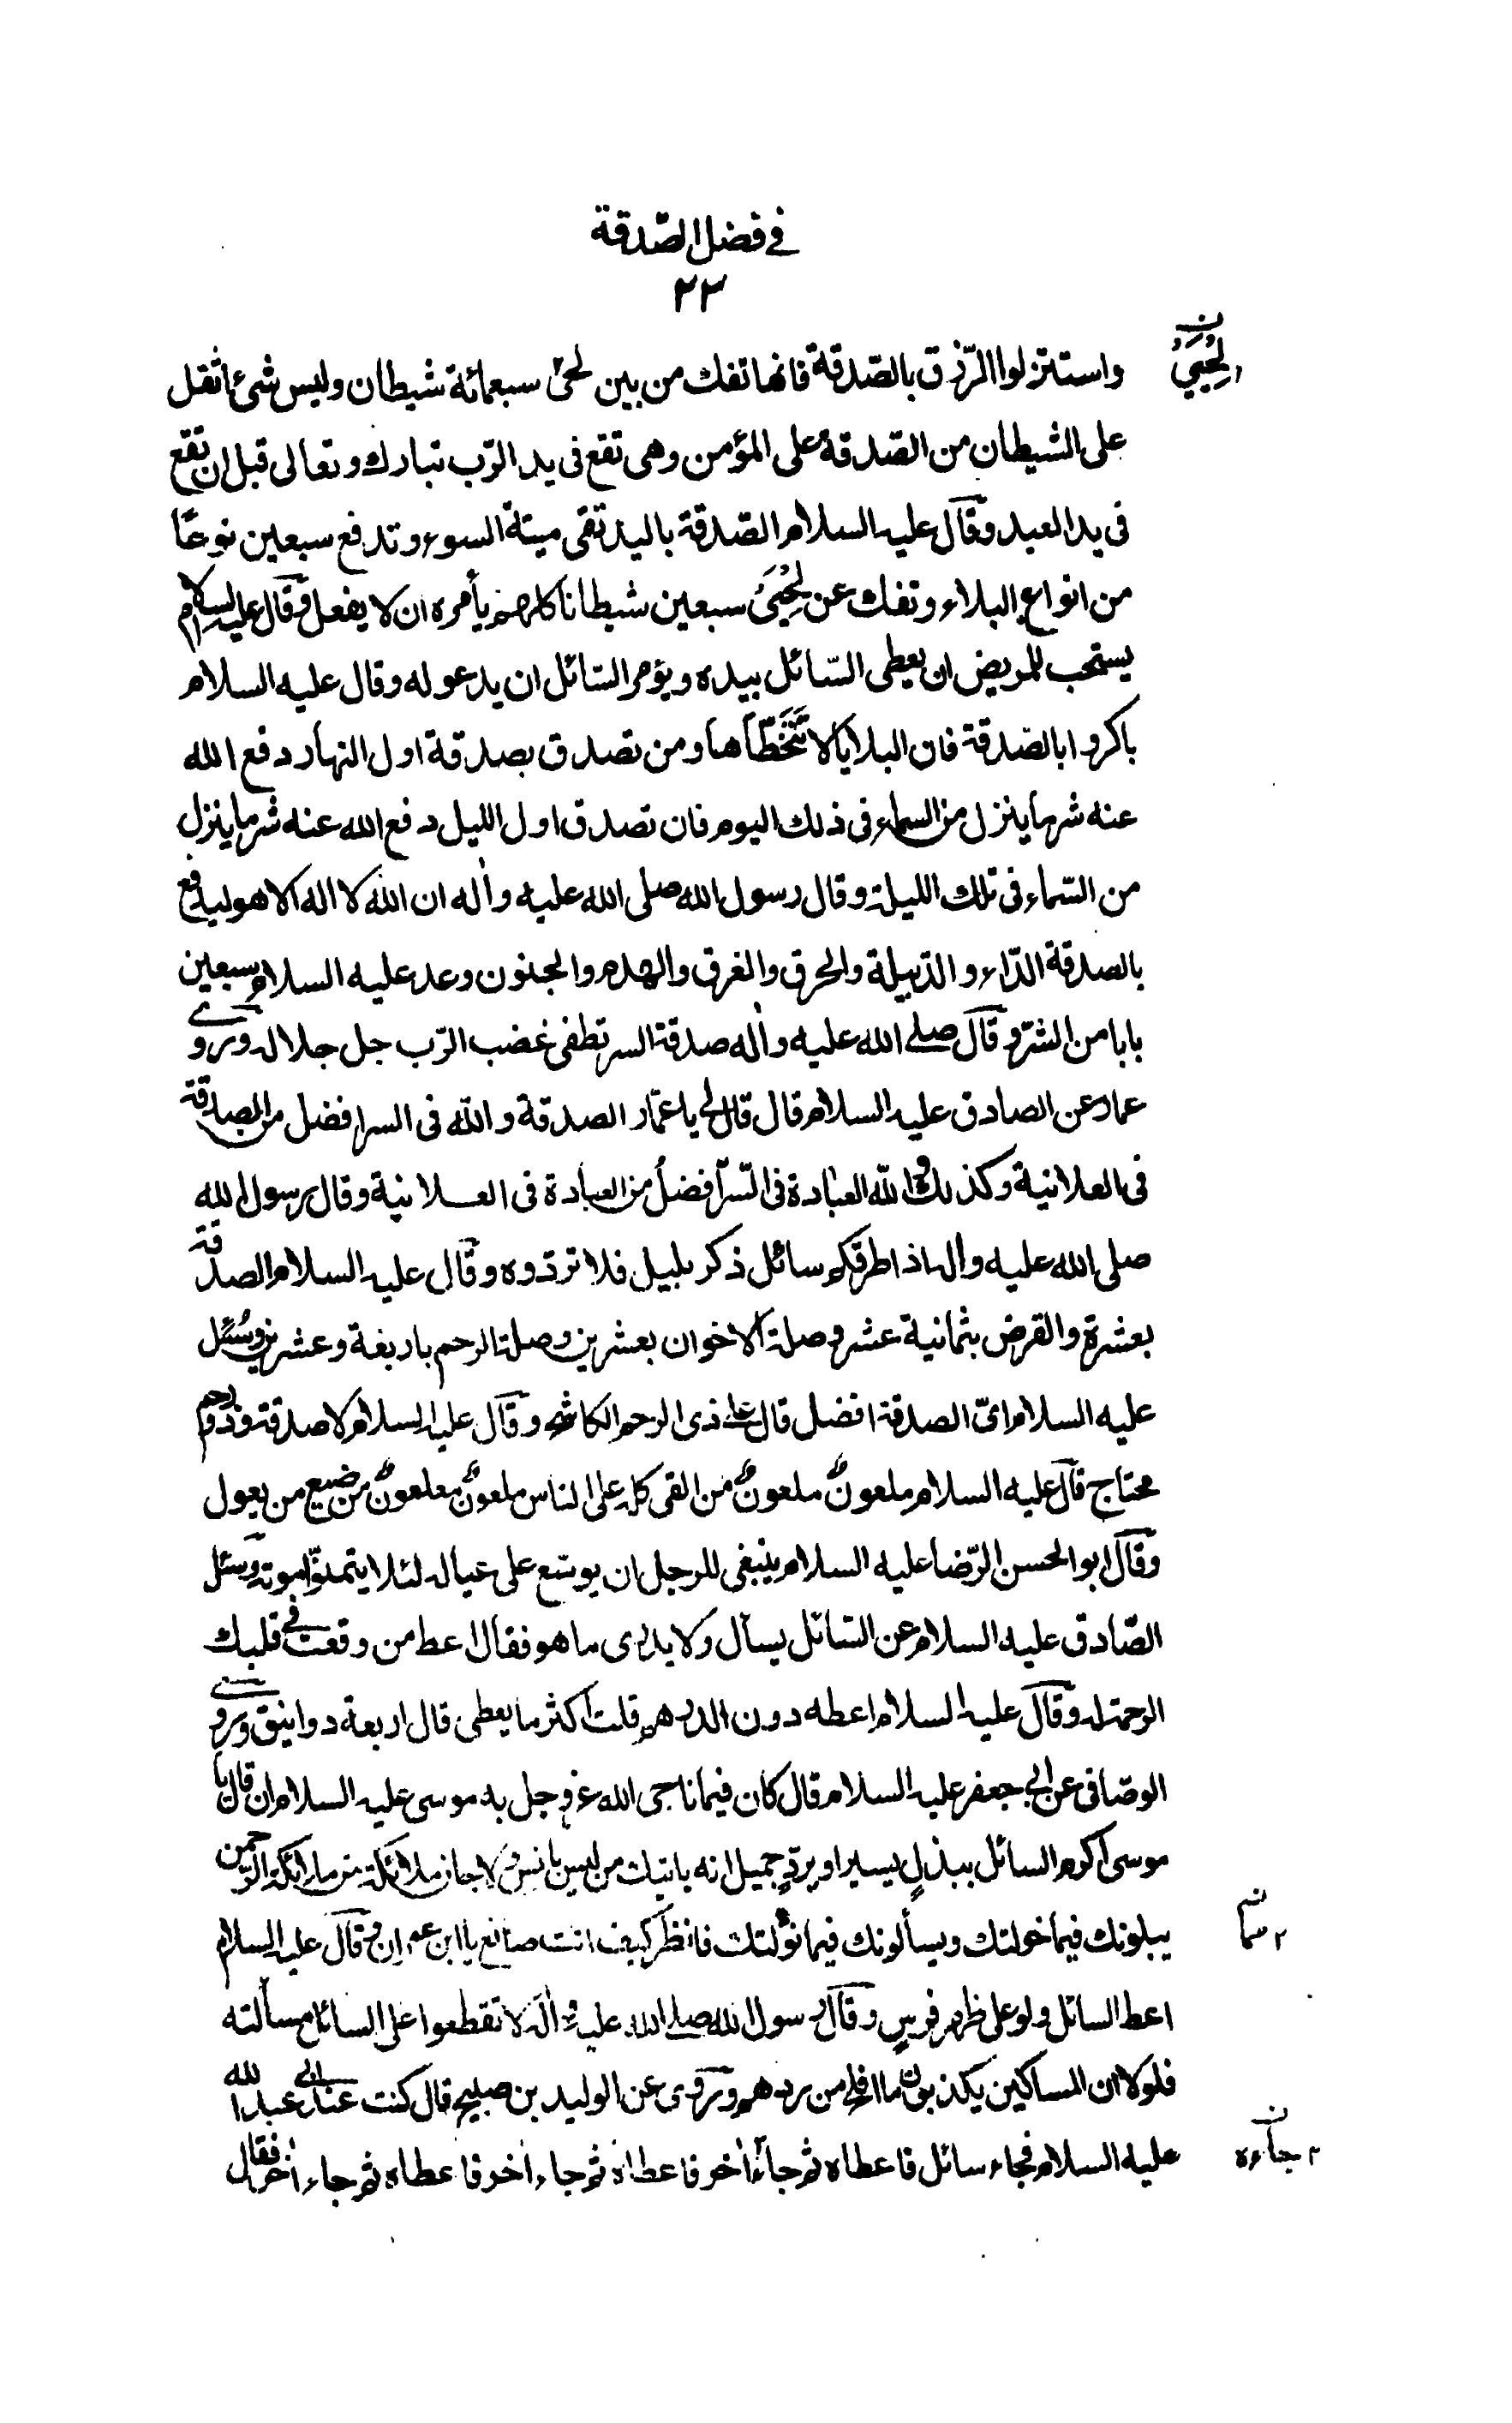 في فضل الصّدقة
٢٢
واستنزلوا الرّزق بالصّدقة فانها تفك من بين لحىْ سبعمائة شيطان وليس شئ اثقل
لِحْيَىْ ن
على الشيطان من الصّدقة على المؤمن وهى تقع فى يد الرّب تبارك وتعالى قبل ان تقع
فى يد العبد وقال عليه السلام الصّدقة باليد تقى ميتة السوء وتدفع سبعين نوعًا
من انواع البلاء وتفك عن لِحْيَىْ سبعين شيطانا كلهم يأمره ان لا يفعل وقال عليه السلام
يستحب للمريض ان يعطى السّائل بيده ويؤمر السّائل ان يدعو له وقال عليه السلام
باكروا بالصّدقة فان البلايا لا تَتَخَطَّاها ومن تصدق بصدقة اول النهار دفع الله
عنه شر ما ينزل من السماء فى ذلك اليوم فان تصدق اول الليل دفع الله عنه شر ما ينزل
من السّماء فى تلك الليلة وقال رسول الله صلى الله عليه واٰله ان الله لا اله الا هو ليدفع
بالصدقة الدّاء والدّبيلة والحرق والغرق والهدم والجنون وعد عليه السلام سبعين
بابا من الشرّ وقال صلى الله عليه واٰله صدقة السر تطفئ غضب الرّب جل جلاله وروى
عمار عن الصادق عليه السلام قال قال لى يا عمّار الصدقة والله فى السر افضل من الصدقة
فى العلانية وكذلك والله العبادة فى السّرّ افضلُ من العبادة فى العلانية وقال رسول الله
صلى الله عليه واٰله اذا طرقكم سائل ذكر بليل فلا تردّوه وقال عليه السلام الصدقة
بعشرة والقرض بثمانية عشر وصلة الاخوان بعشرين وصلة الرحم باربعة وعشرين وسُئل
عليه السلام اىّ الصدقة افضل قال على ذى الرحم الكاشح وقال عليه السلام لا صدقة وذو رحم
محتاج قال عليه السلام ملعونٌ ملعونٌ من القى كله على الناس ملعونٌ ملعونٌ من ضيع من يعول
وقال ابو الحسن الرّضا عليه السلام ينبغى للرجل ان يوسّع على عياله لئلا يتمنّوا موته وسئل
الصّادق عليه السلام عن السّائل يسأل ولا يدرى ما هو فقال اعط من وقعت فى قلبك
الرحمة له وقال عليه السلام اعطه دون الدرهم قلت اكثر ما يعطى قال اربعة دوانيق وروى
الوصّافى عن ابى جعفر عليه السلام قال كان فيما ناجى الله عز وجل به موسى عليه السلام ان قال يا
موسى اكرم السائل ببذلٍ يسير او بردٍّ جميل انه ياتيك من ليس بانس ولا جان ملائكة من ملائكة الرّحمن
يبلونك فيما خولتك ويسألونك فيما نوّلتك فانظر كيف انت صانع يا ابن عمران وقال عليه السلام
اعط السائل ولو على ظهر فرسٍ وقال رسول الله صلى الله عليه واٰله لا تقطعوا على السائل مسألته
فلولا ان المساكين يكذبون ما افلح من ردهم وروى عن الوليد بن صبيح قال كنت عند ابى عبد الله
عليه السلام فجاءه سائل فاعطاه ثم جاء اٰخر فاعطاه ثم جاء اٰخر فاعطاه ثم جاء اٰخر فقال
٢ جاءه ن